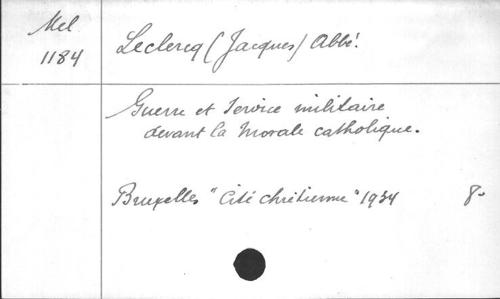 Mel
1184
Leclercq (Jacques) Abbé.
Guerre et Service militaire
devant la Morale catholique.
Bruxelles "Cité chrétienne" 1934 8-